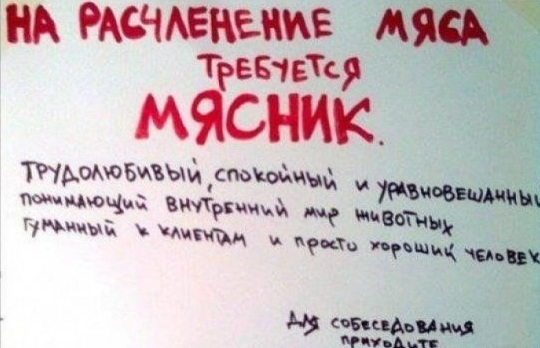 НА РАСЧЛЕНЕНИЕ МЯСА
ТРЕБУЕТСЯ
МЯСНИК.
ТРУДОЛЮБИВЫЙ, СПОКОЙНЫЙ И УРАВНОВЕШАННЫЙ
ПОНИМАЮЩИЙ ВНУТРЕННИЙ МИР ЖИВОТНЫХ
ГУМАННЫЙ К КЛИЕНТАМ И ПРОСТО ХОРОШИЙ ЧЕЛОВЕК
ДЛЯ СОБЕСЕДОВАНИЯ
ПРИХОДИТЕ